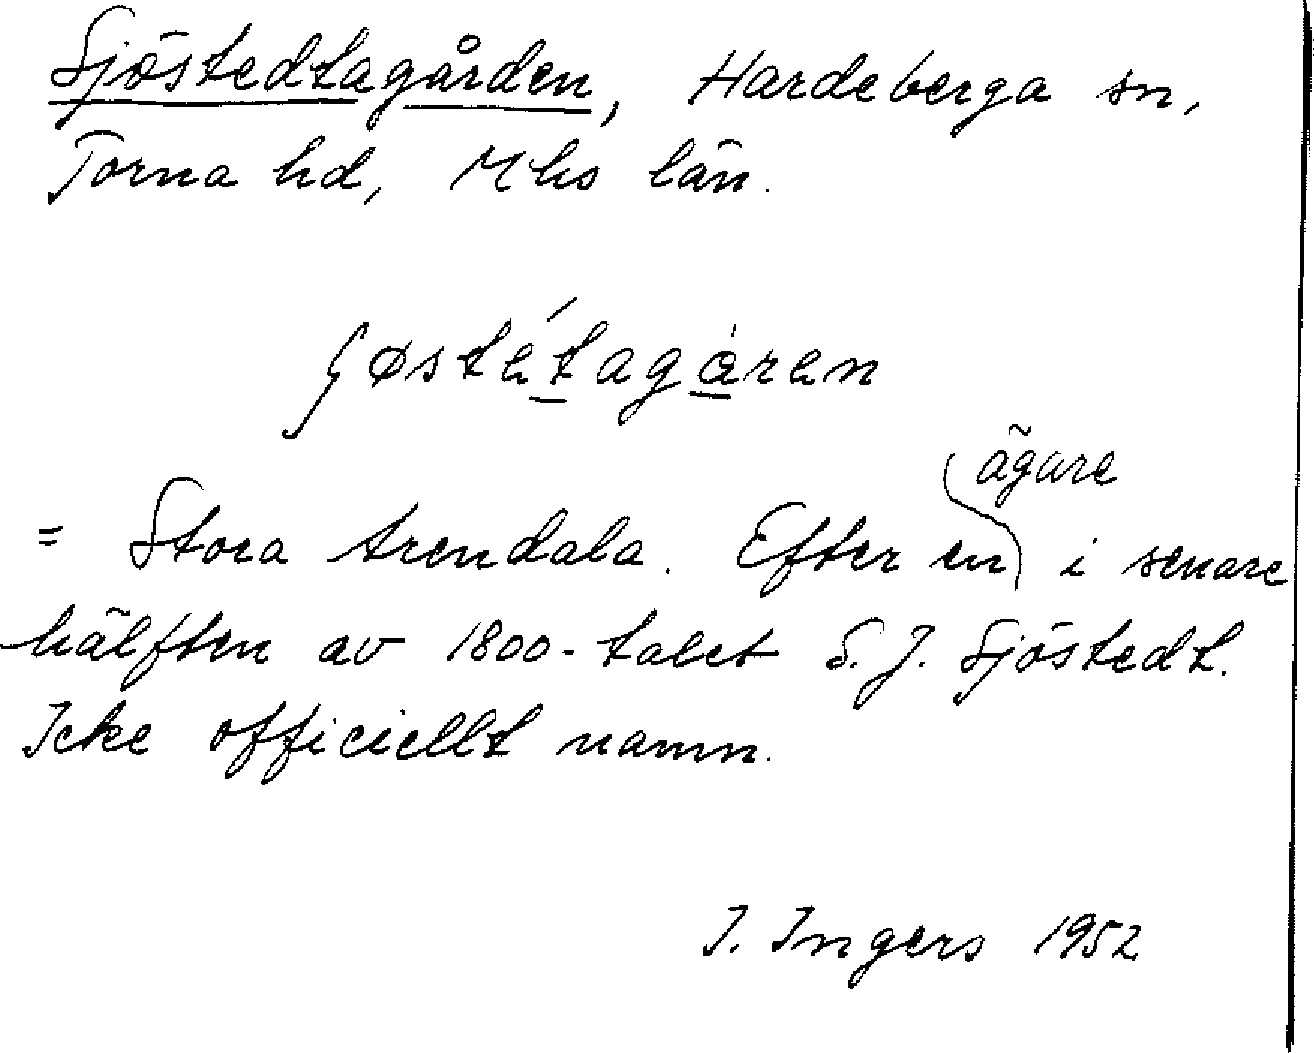 Sjöstedtagården, Hardeberga sn,
Torna hd, Mhs län.
ägare
= Stora Arendala. Efter en i senare
hälften av 1800-talet S. J. Sjöstedt.
Icke officiellt namn.
I. Ingers 1952